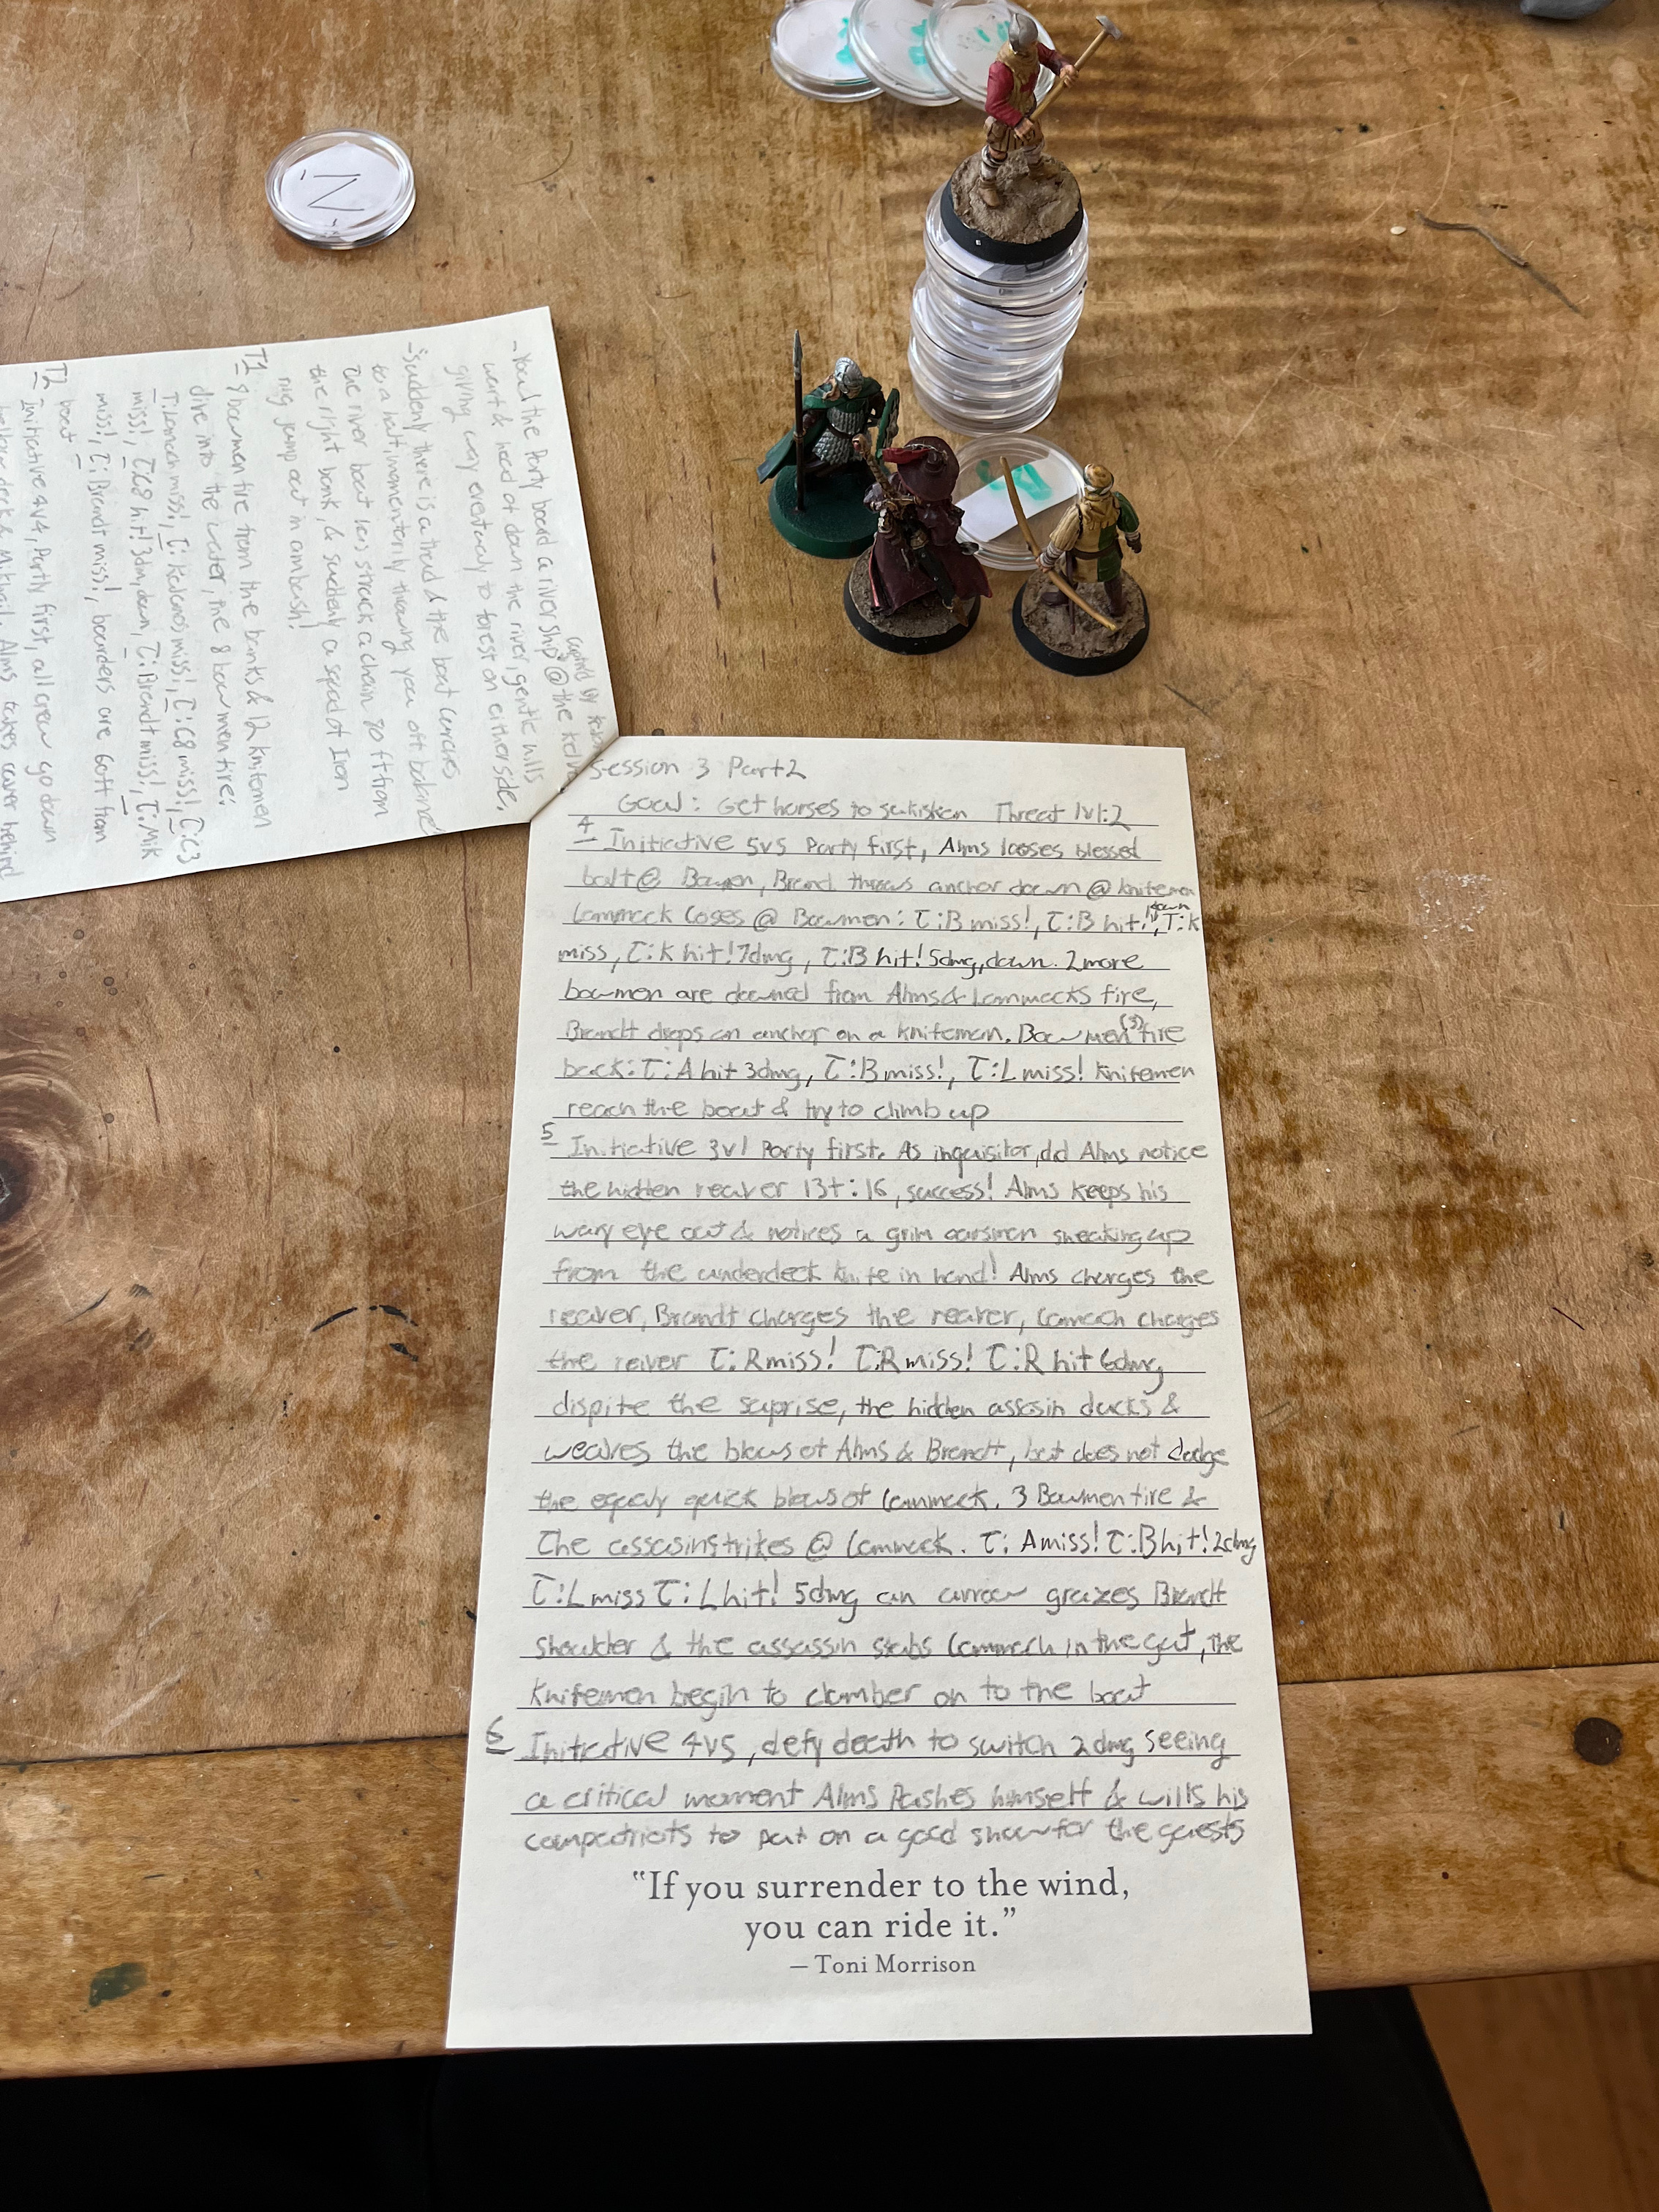 -Now the Party board a rivership @ the
want & head of down the river, gentle hills
giving way eventualy to forest on either side,
-Suddenly there is a thud & the boat lurches
to a halt, momentarily throwing you off balance
the river boat has struck a chain 80ft from
the right bank, & suddenly a squad of Iron
ring jump out in ambush!
T1 8 bowmen fire from the banks & 12 knifemen
dive into the water, the 8 bowmen fire:
T:Lamech miss!, T: miss!, T:C8 miss!, T:C3
miss!, T:C8 hit! 3dmg, down, T:Brendt miss!, T:Mik
miss!, T:Brandt miss!, boarders are 60ft from
boat
T2 Initiative 4v4, Partly first, all crew go down
below deck & Mikhail. Alms takes cover behind
Session 3 Part2
Goal: Get horses to sukisken Threat lvl:2
4 Initiative 5v5 Party first, Alms looses blessed
bolt@ Bowmen, Brend throws anchor down @ knifemen
Lammack Loses @ Bowmen: T:B miss!, T:B hit!, down T:K
miss, T:K hit! 7dmg, T:B hit! 5dmg,down. 2more
bowmen are downed from Alms& Lammacks fire,
Brandt drops an anchor on a knifeman. Bowmen(3) fire
back: T:A hit 3dmg, T:B miss!, T:L miss! Knifemen
reach the boat & try to climb up
5 Initiative 3v1 Party first. As inquisitor, did Alms notice
the hidden reaver 13+: 16, success! Alms keeps his
wary eye out & notices a grim oarsman sneaking up
from the underdeck knife in hand! Alms charges the
reaver, Brandt charges the reaver, Lamach charges
the reiver T:R miss! T:R miss! T:R hit 6dmg
dispite the suprise, the hidden assasin ducks &
weaves the blows of Alms & Brendt, but does not dodge
the equaly quick blows of Lammack. 3 Bowmen fire &
The assasin strikes @ Lammack. T: A miss! T:B hit! 2dmg
T:L miss T: L hit! 5dmg an arrow grazes Brandt
shoulder & the assassin stabs Lammach in the gut, the
Knifemen begin to clamber on to the boat
6 Initiative 4v5, defy death to switch 2dmg seeing
a critical moment Alms Pushes himself & wills his
compatriots to put on a good show for the guests
"If you surrender to the wind,
you can ride it."
— Toni Morrison